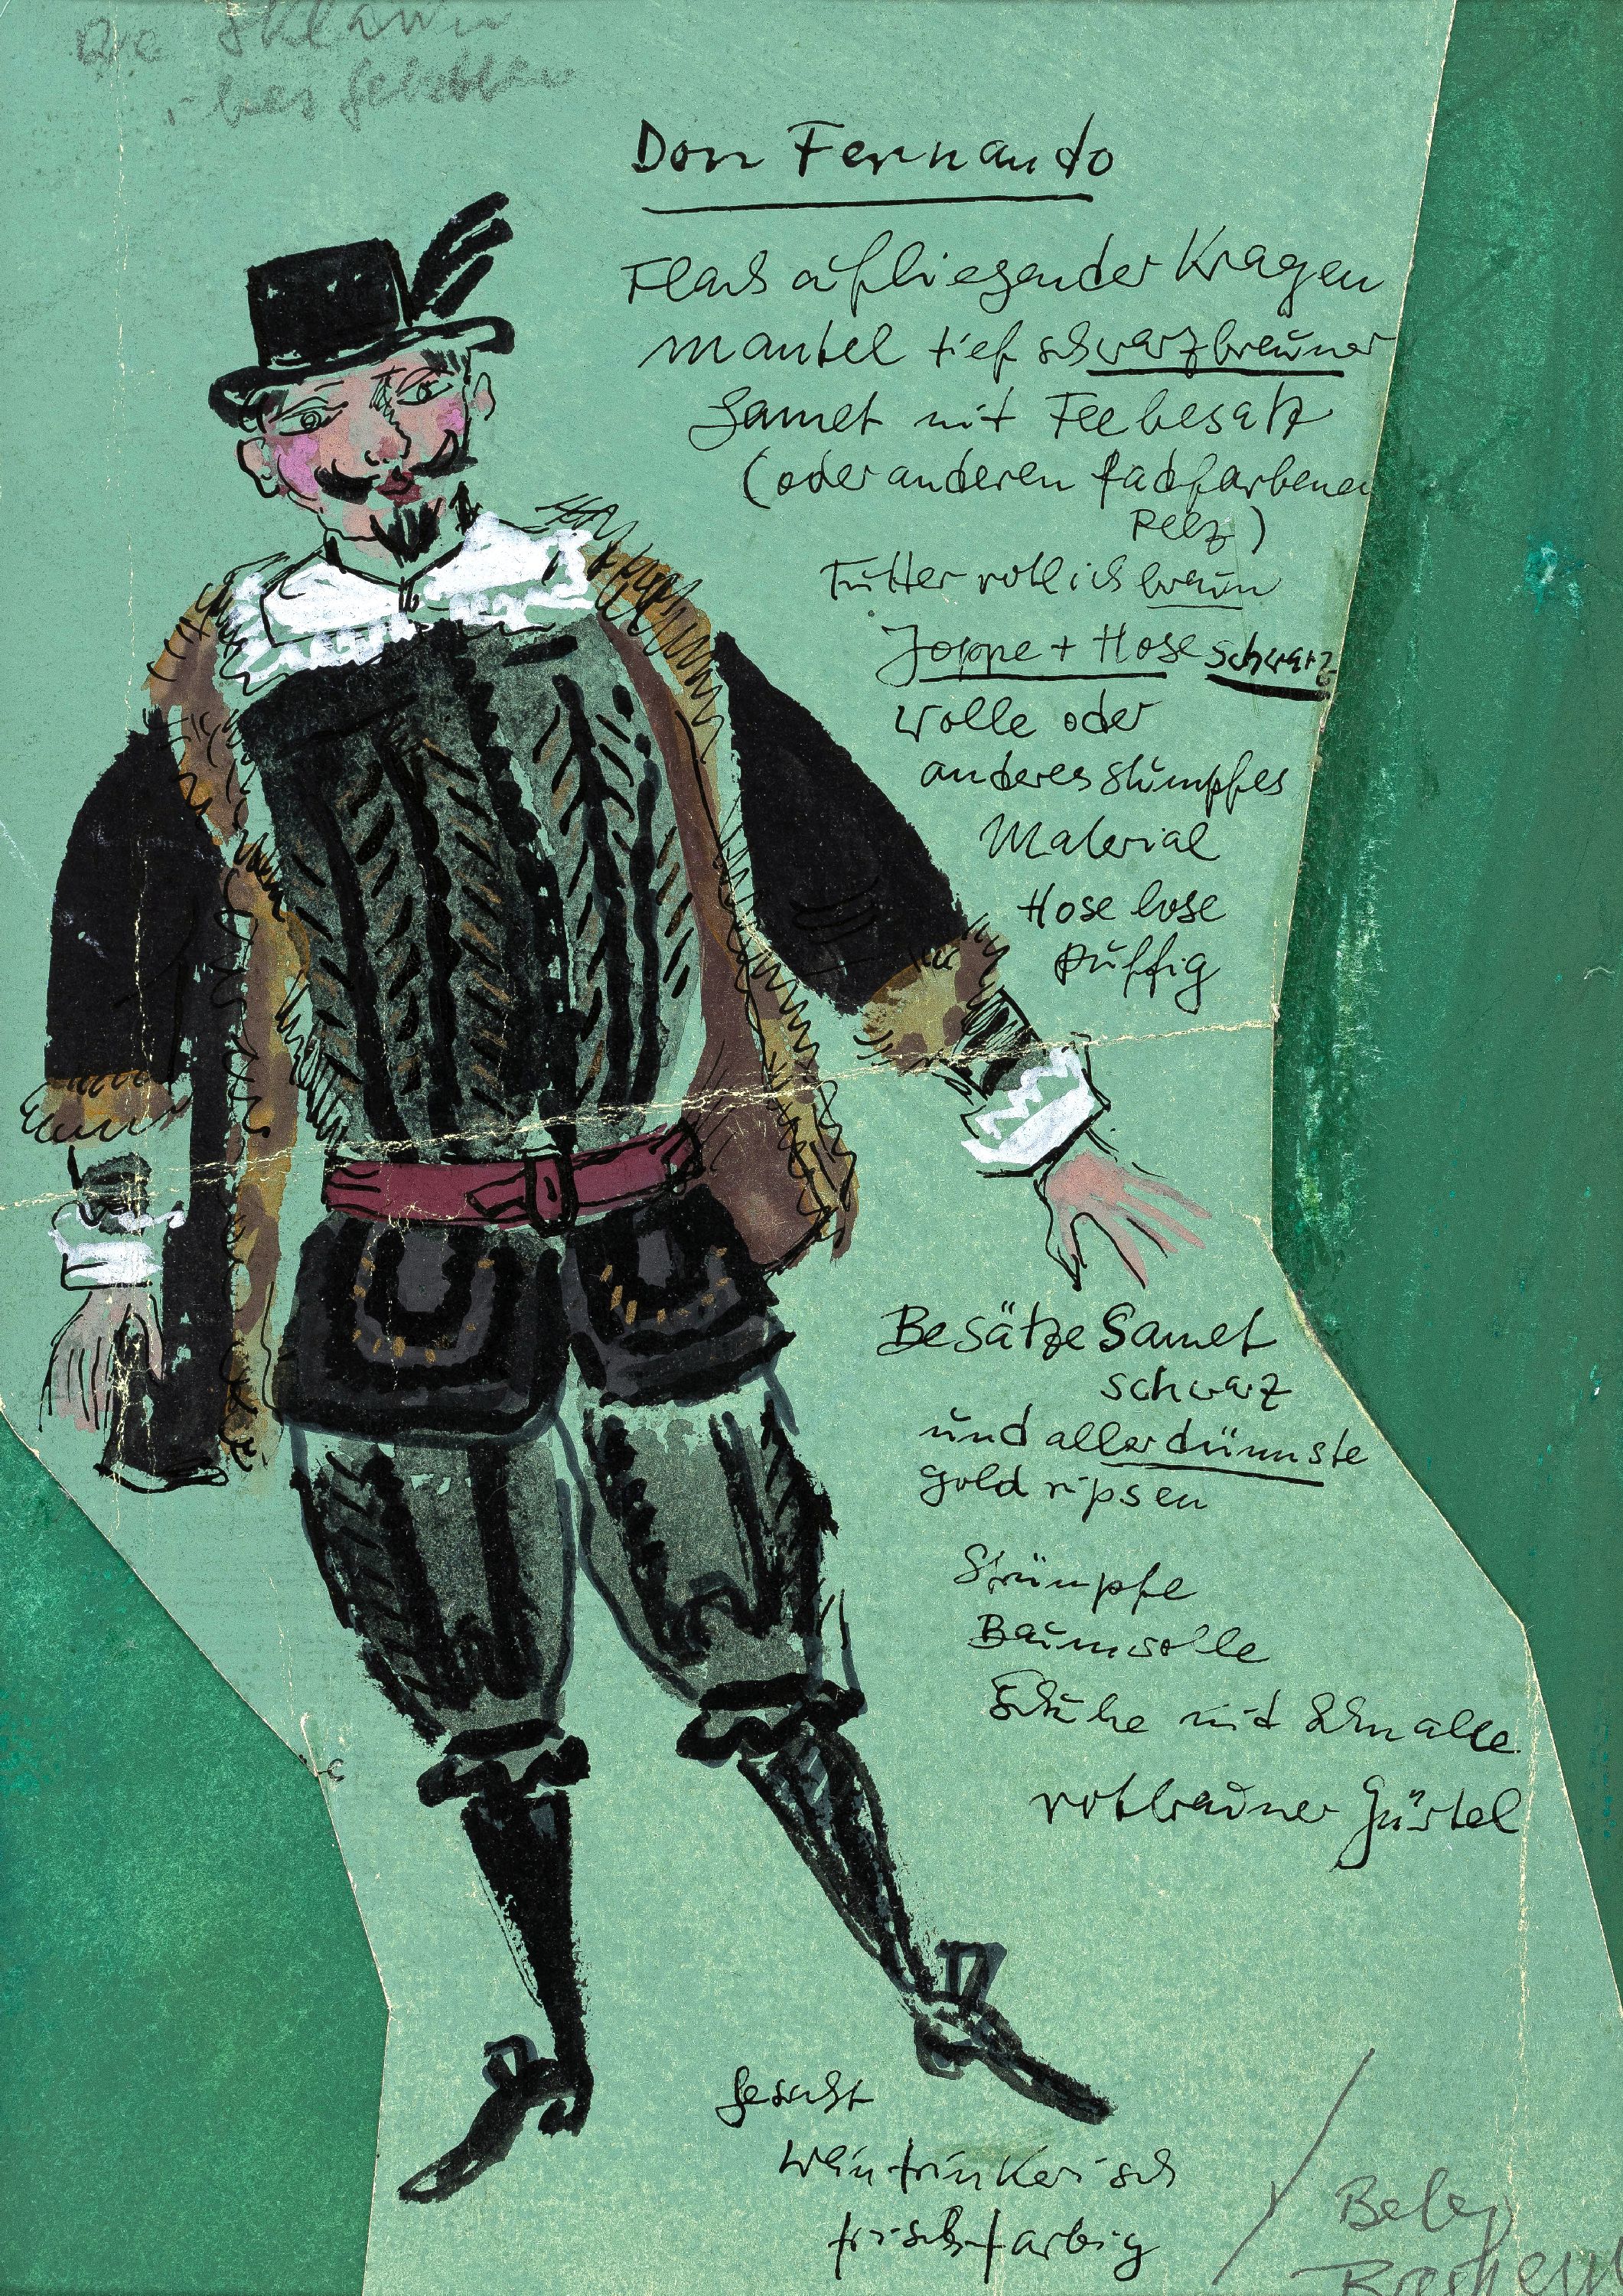 Die Sklavin
ihres Geliebten
Don Fernando
Flach aufliegender Kragen
Mantel tief schwarzbrauner
Samet mit Feebesatz
(oder anderen fadfarbenen
Pelz)
Futter rötlich braun
Joppe + Hose schwarz
Wolle oder
anderes stumpfes
Material
Hose lose
puffig
Besätze Samet
schwarz
und allerdünnste
Goldripsen
Strümpfe
Baumwolle
Schuhe mit Schnalle
rotbrauner Gürtel
Gesicht
weintrinkerisch
frischfarbig